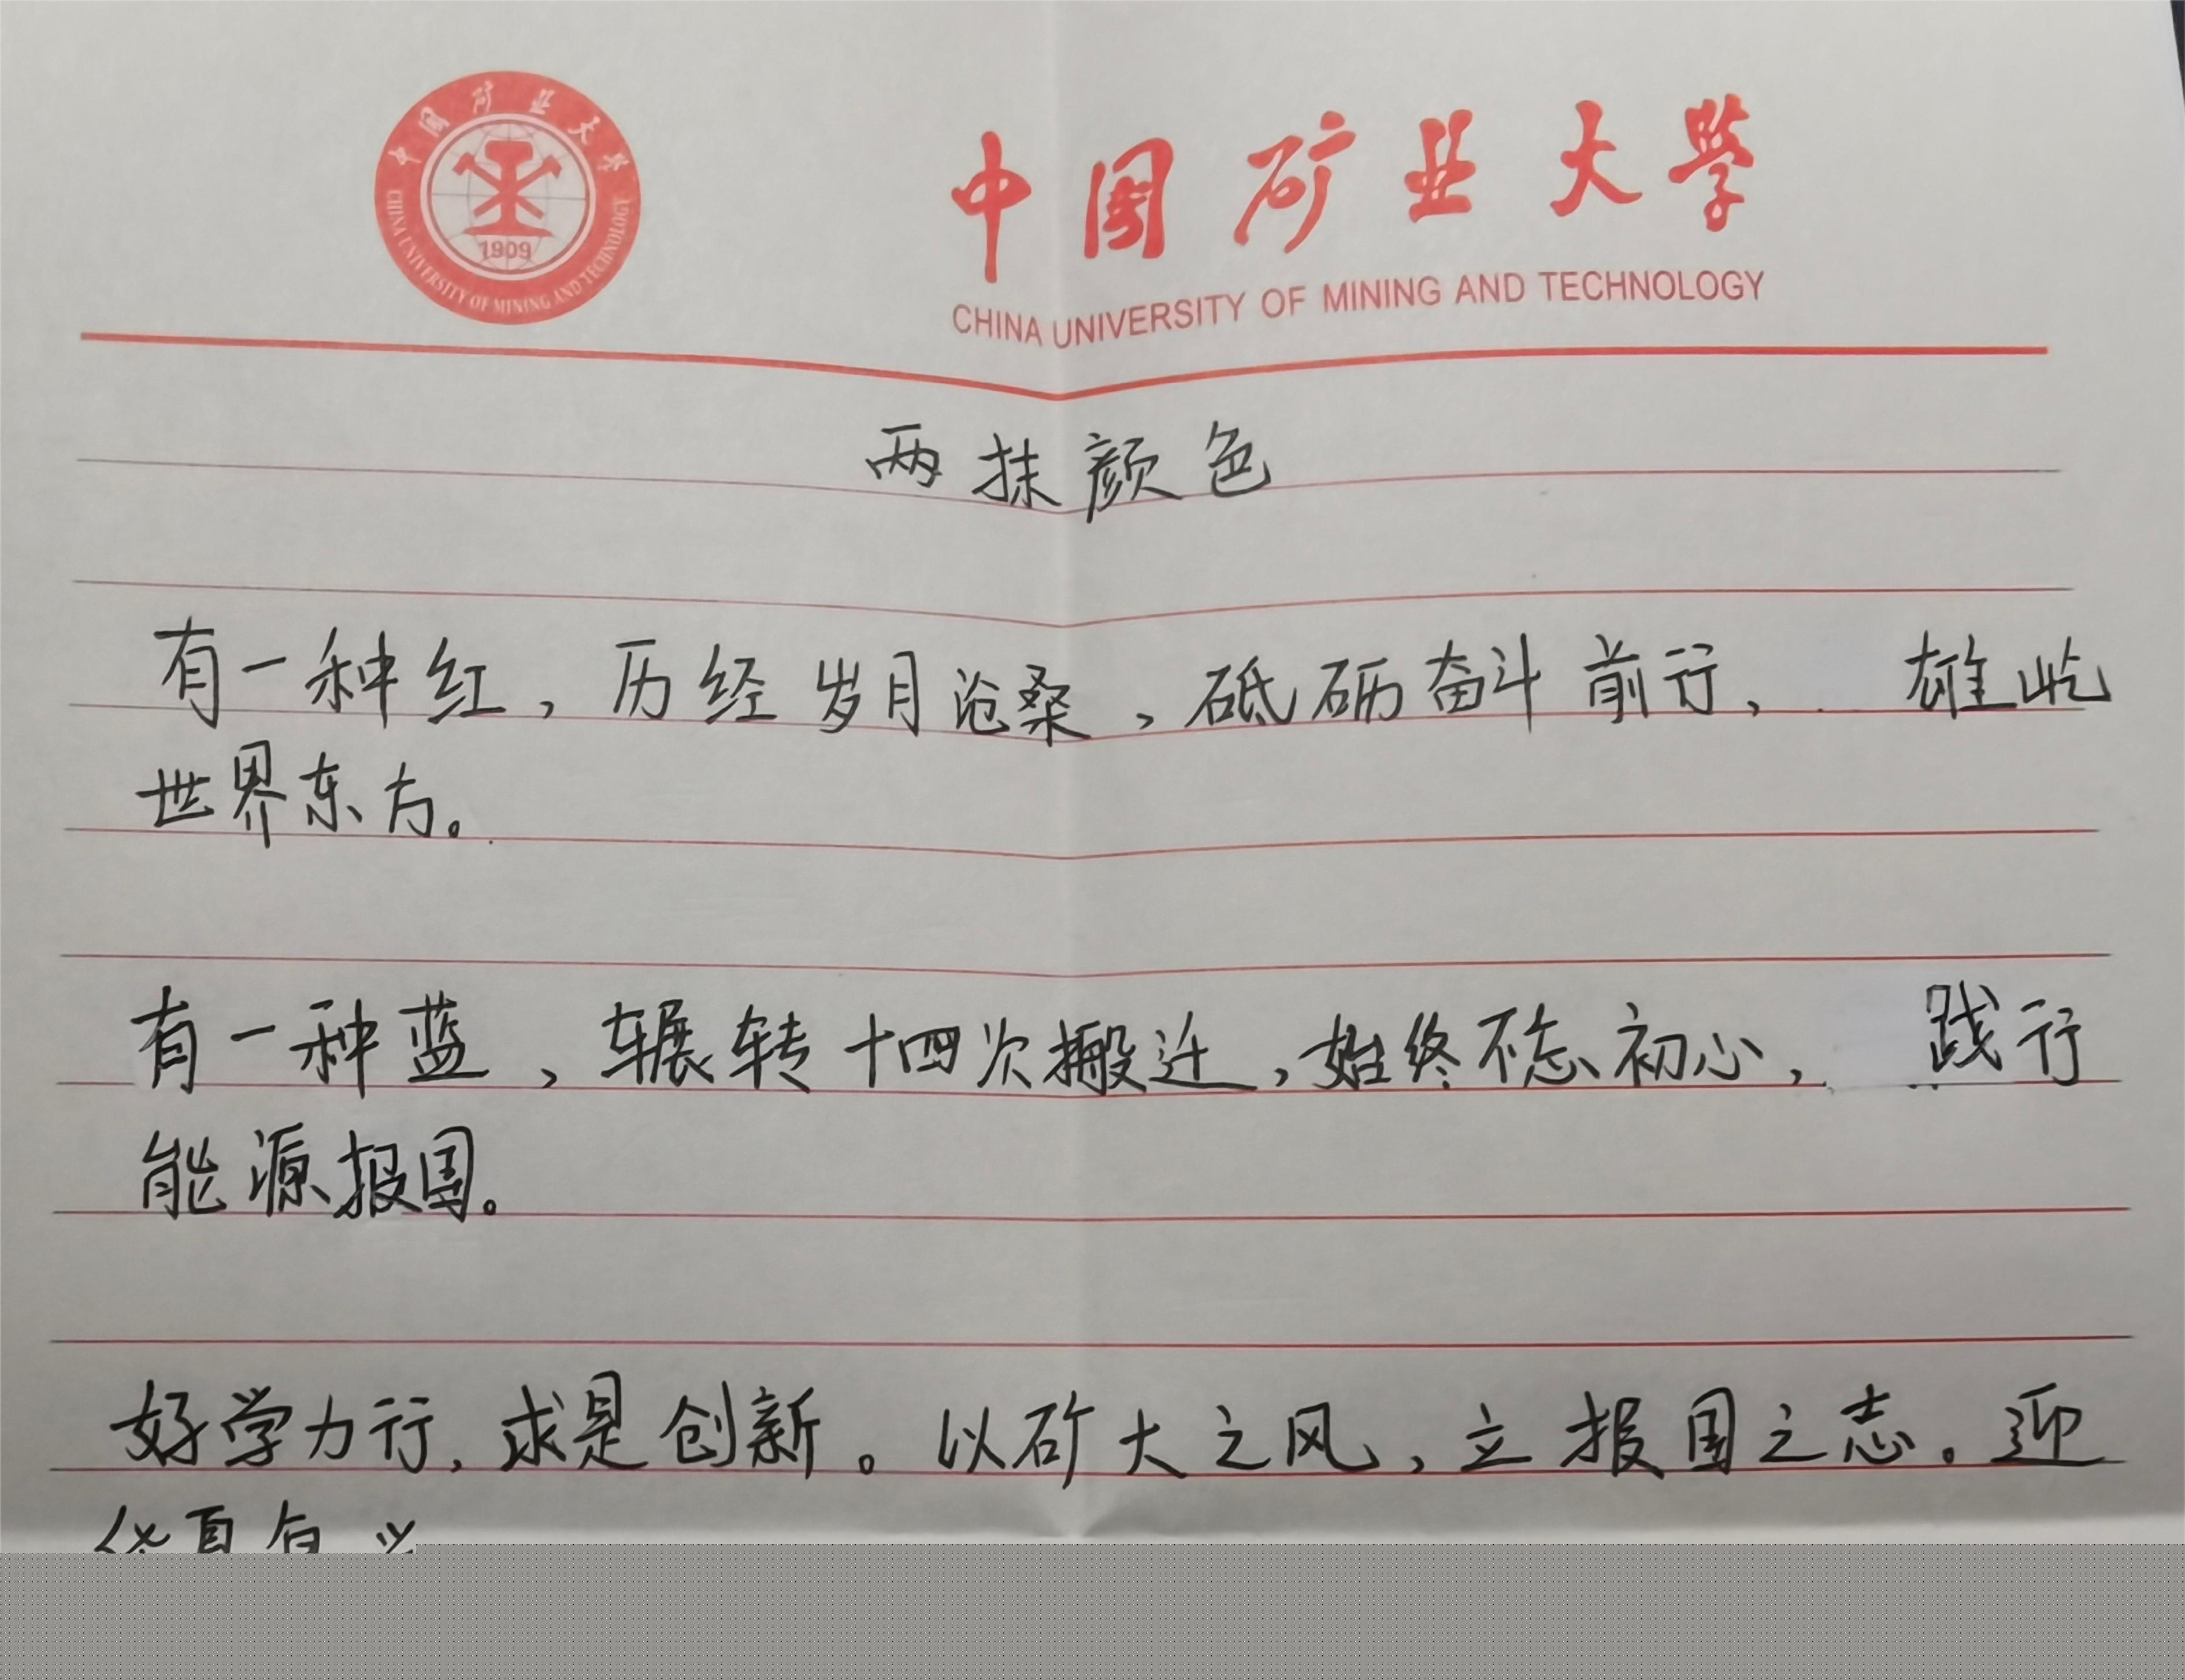 中国矿业大学
CHINA UNIVERSITY OF MINING AND TECHNOLOGY
1909
中国矿业大学
CHINA UNIVERSITY OF MINING AND TECHNOLOGY
两抹颜色
有一种红，历经岁月沧桑，砥砺奋斗前行，雄屹
世界东方。
有一种蓝，辗转十四次搬迁，始终不忘初心，践行
能源报国。
好学力行，求是创新。以矿大之风，立报国之志。迎
华夏